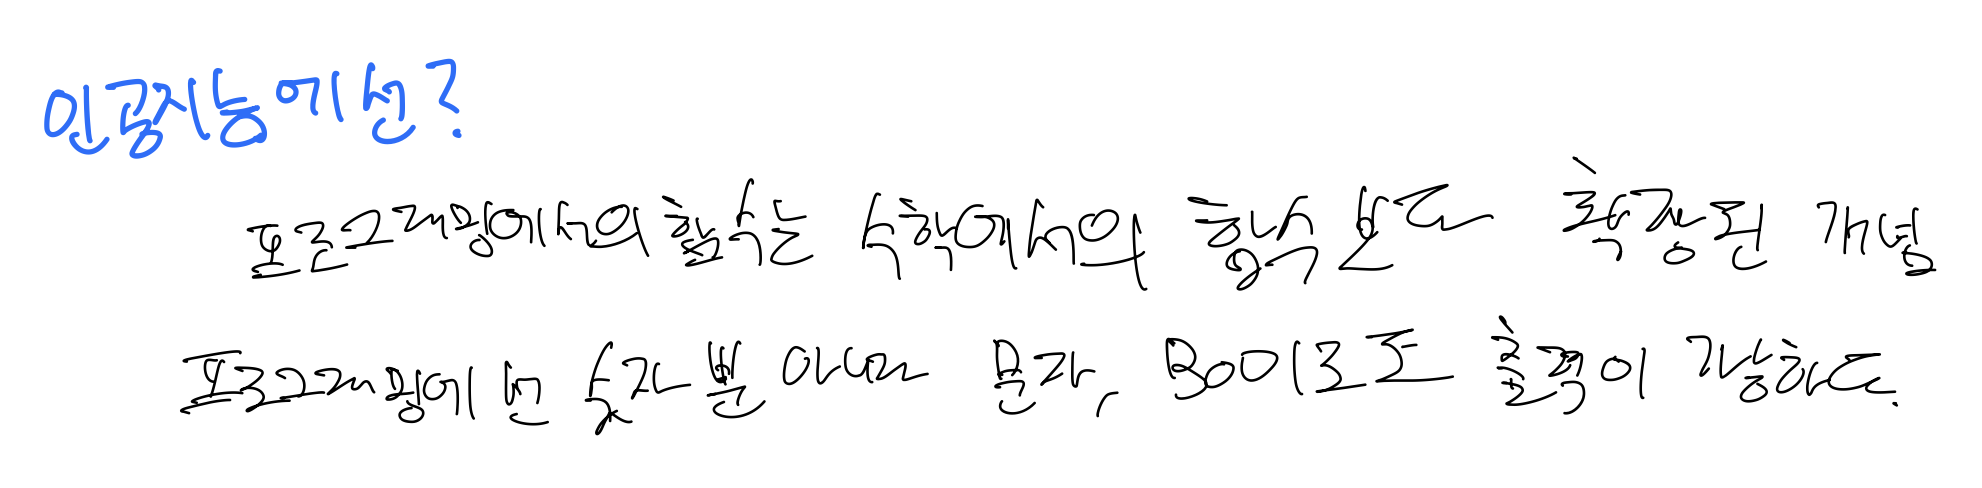 인공지능에선?
프로그래밍에서의 함수는 수학에서의 함수보다 확장된 개념
프로그래밍에선 숫자뿐 아니라 문자, Boolean도 출력이 가능하다.